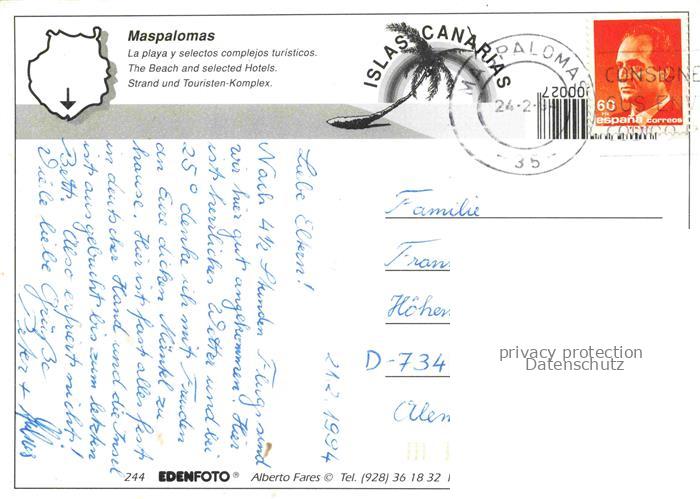 Maspalomas
La playa y selectos complejos turísticos.
The Beach and selected Hotels.
Strand und Touristen-Komplex.
ISLAS CANARIAS
MASPALOMAS
24-2-94
-35-
000027
CONSIGNE
SUS ENV
CODIGO
60
españa correos
21.2.1994
Liebe Eltern!
Nach 4½ Stunden Flug sind
wir hier gut angekommen. Hier
ist herrliches Wetter und bei
25° denke ich mit Freuden
an Eure dicken Mäntel zu
hause. Hier ist fast alles fest
in deutscher Hand und die Insel
ist ausgebucht bis zum letzten
Bett. Also erfriert nicht!
Viele liebe Grüße
Peter +
Familie
Fran
Höhen
D-734
privacy protection
Datenschutz
244 EDENFOTO® Alberto Fares © Tel. (928) 36 18 32